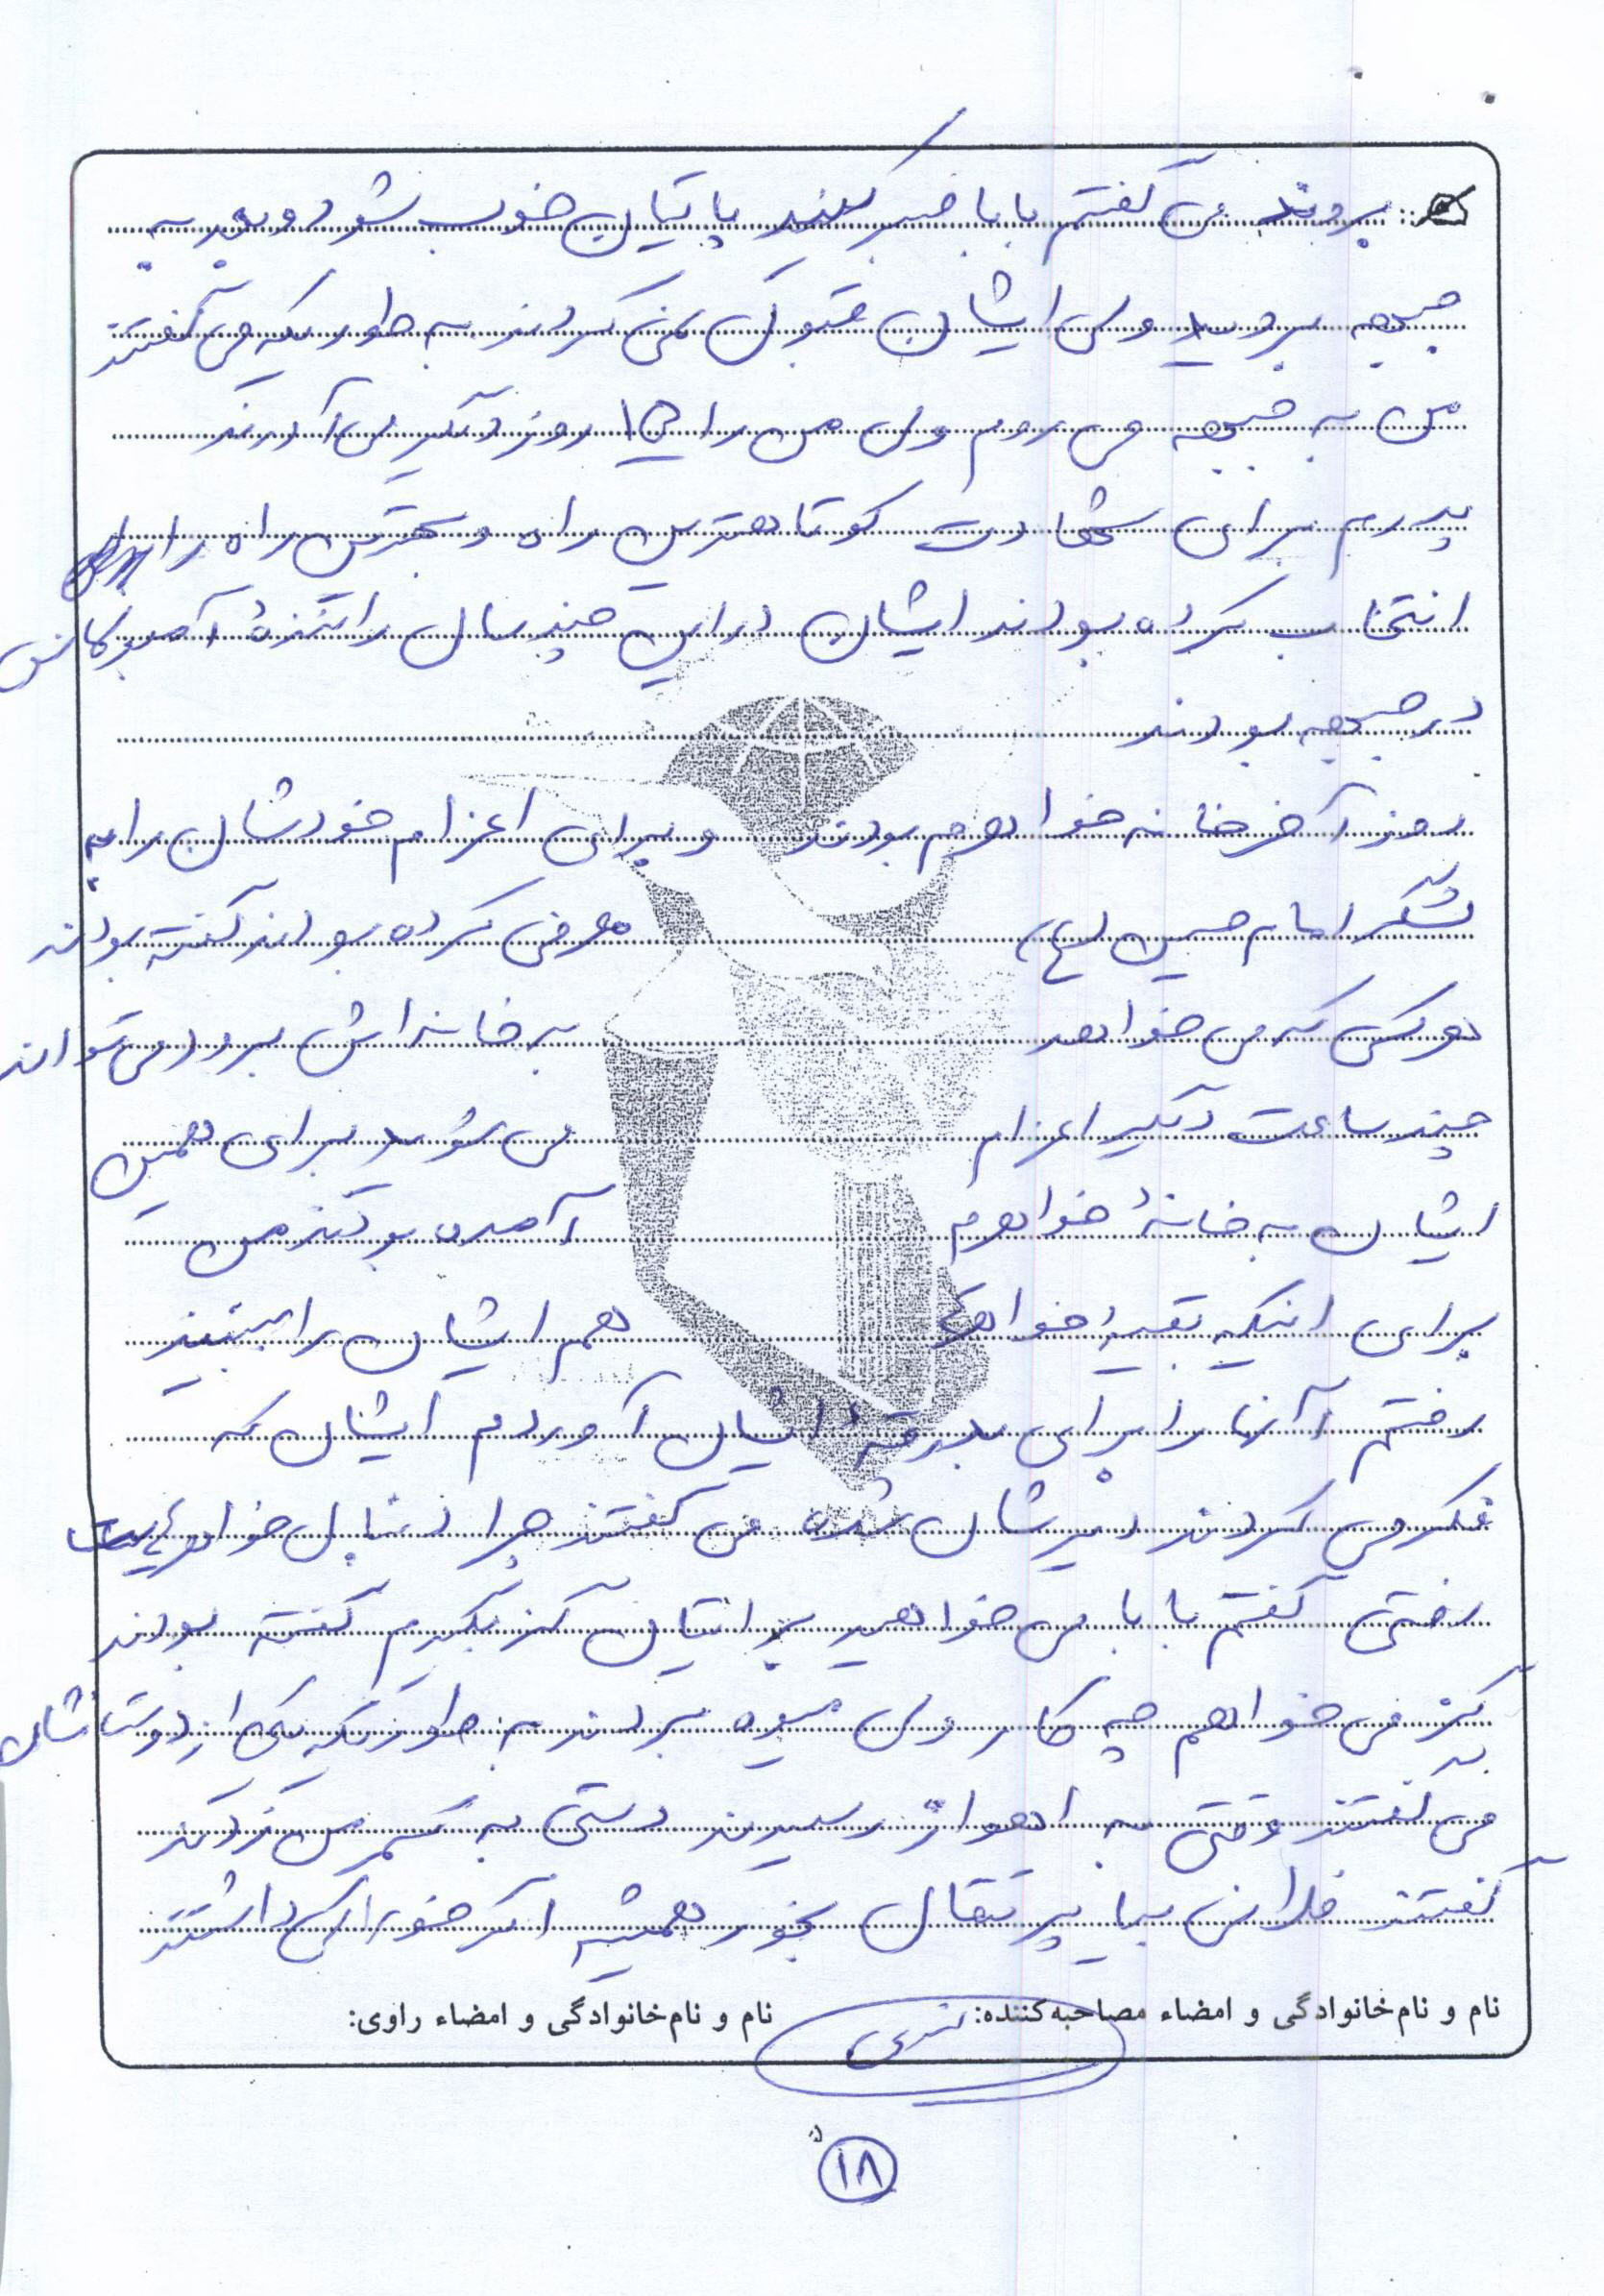 بروند می گفتم بابا صبر کنید پایتان خوب شود و بعد به
جبهه بروید ولی ایشان قبول نمی کردند به طوریکه می گفتند
من به جبهه می روم ولی من را ۱۵ روز دیگر می آورند
پدرم برای شهادت کوتاهترین راه و بهترین راه را
انتخاب کرده بودند ایشان در این چند سال رانندۀ آمبولانس
در جبهه بودند
روز آخر خانه خواهرم بودند و برای اعزام خودشان را به
لشگر امام حسین (ع) معرفی کرده بودند گفته بودند
هر کس که می خواهد به خانه اش برود می تواند
چند ساعت دیگر اعزام می شوید برای همین
ایشان به خانۀ خواهرم آمده بودند من
برای اینکه بقیه خواهرها هم ایشان را ببینند
رفتم آنها را برای بدرقۀ ایشان آوردم ایشان که
فکر می کردند دیرشان شده می گفتند چرا دنبال خواهرهایت
رفتی گفتم بابا می خواهید برایتان گز بگیرم گفته بودند
گز می خواهم چه کار ولی میوه بردند به طوریکه یکی از دوستانشان
می گفتند وقتی به اهواز رسیدند دستی به کمر من زدند
گفتند فلانی بیا پرتقال بخور همیشه اگر خوراکی داشتند
نام و نام خانوادگی و امضاء مصاحبه کننده: نام و نام خانوادگی و امضاء راوی:
۱۸